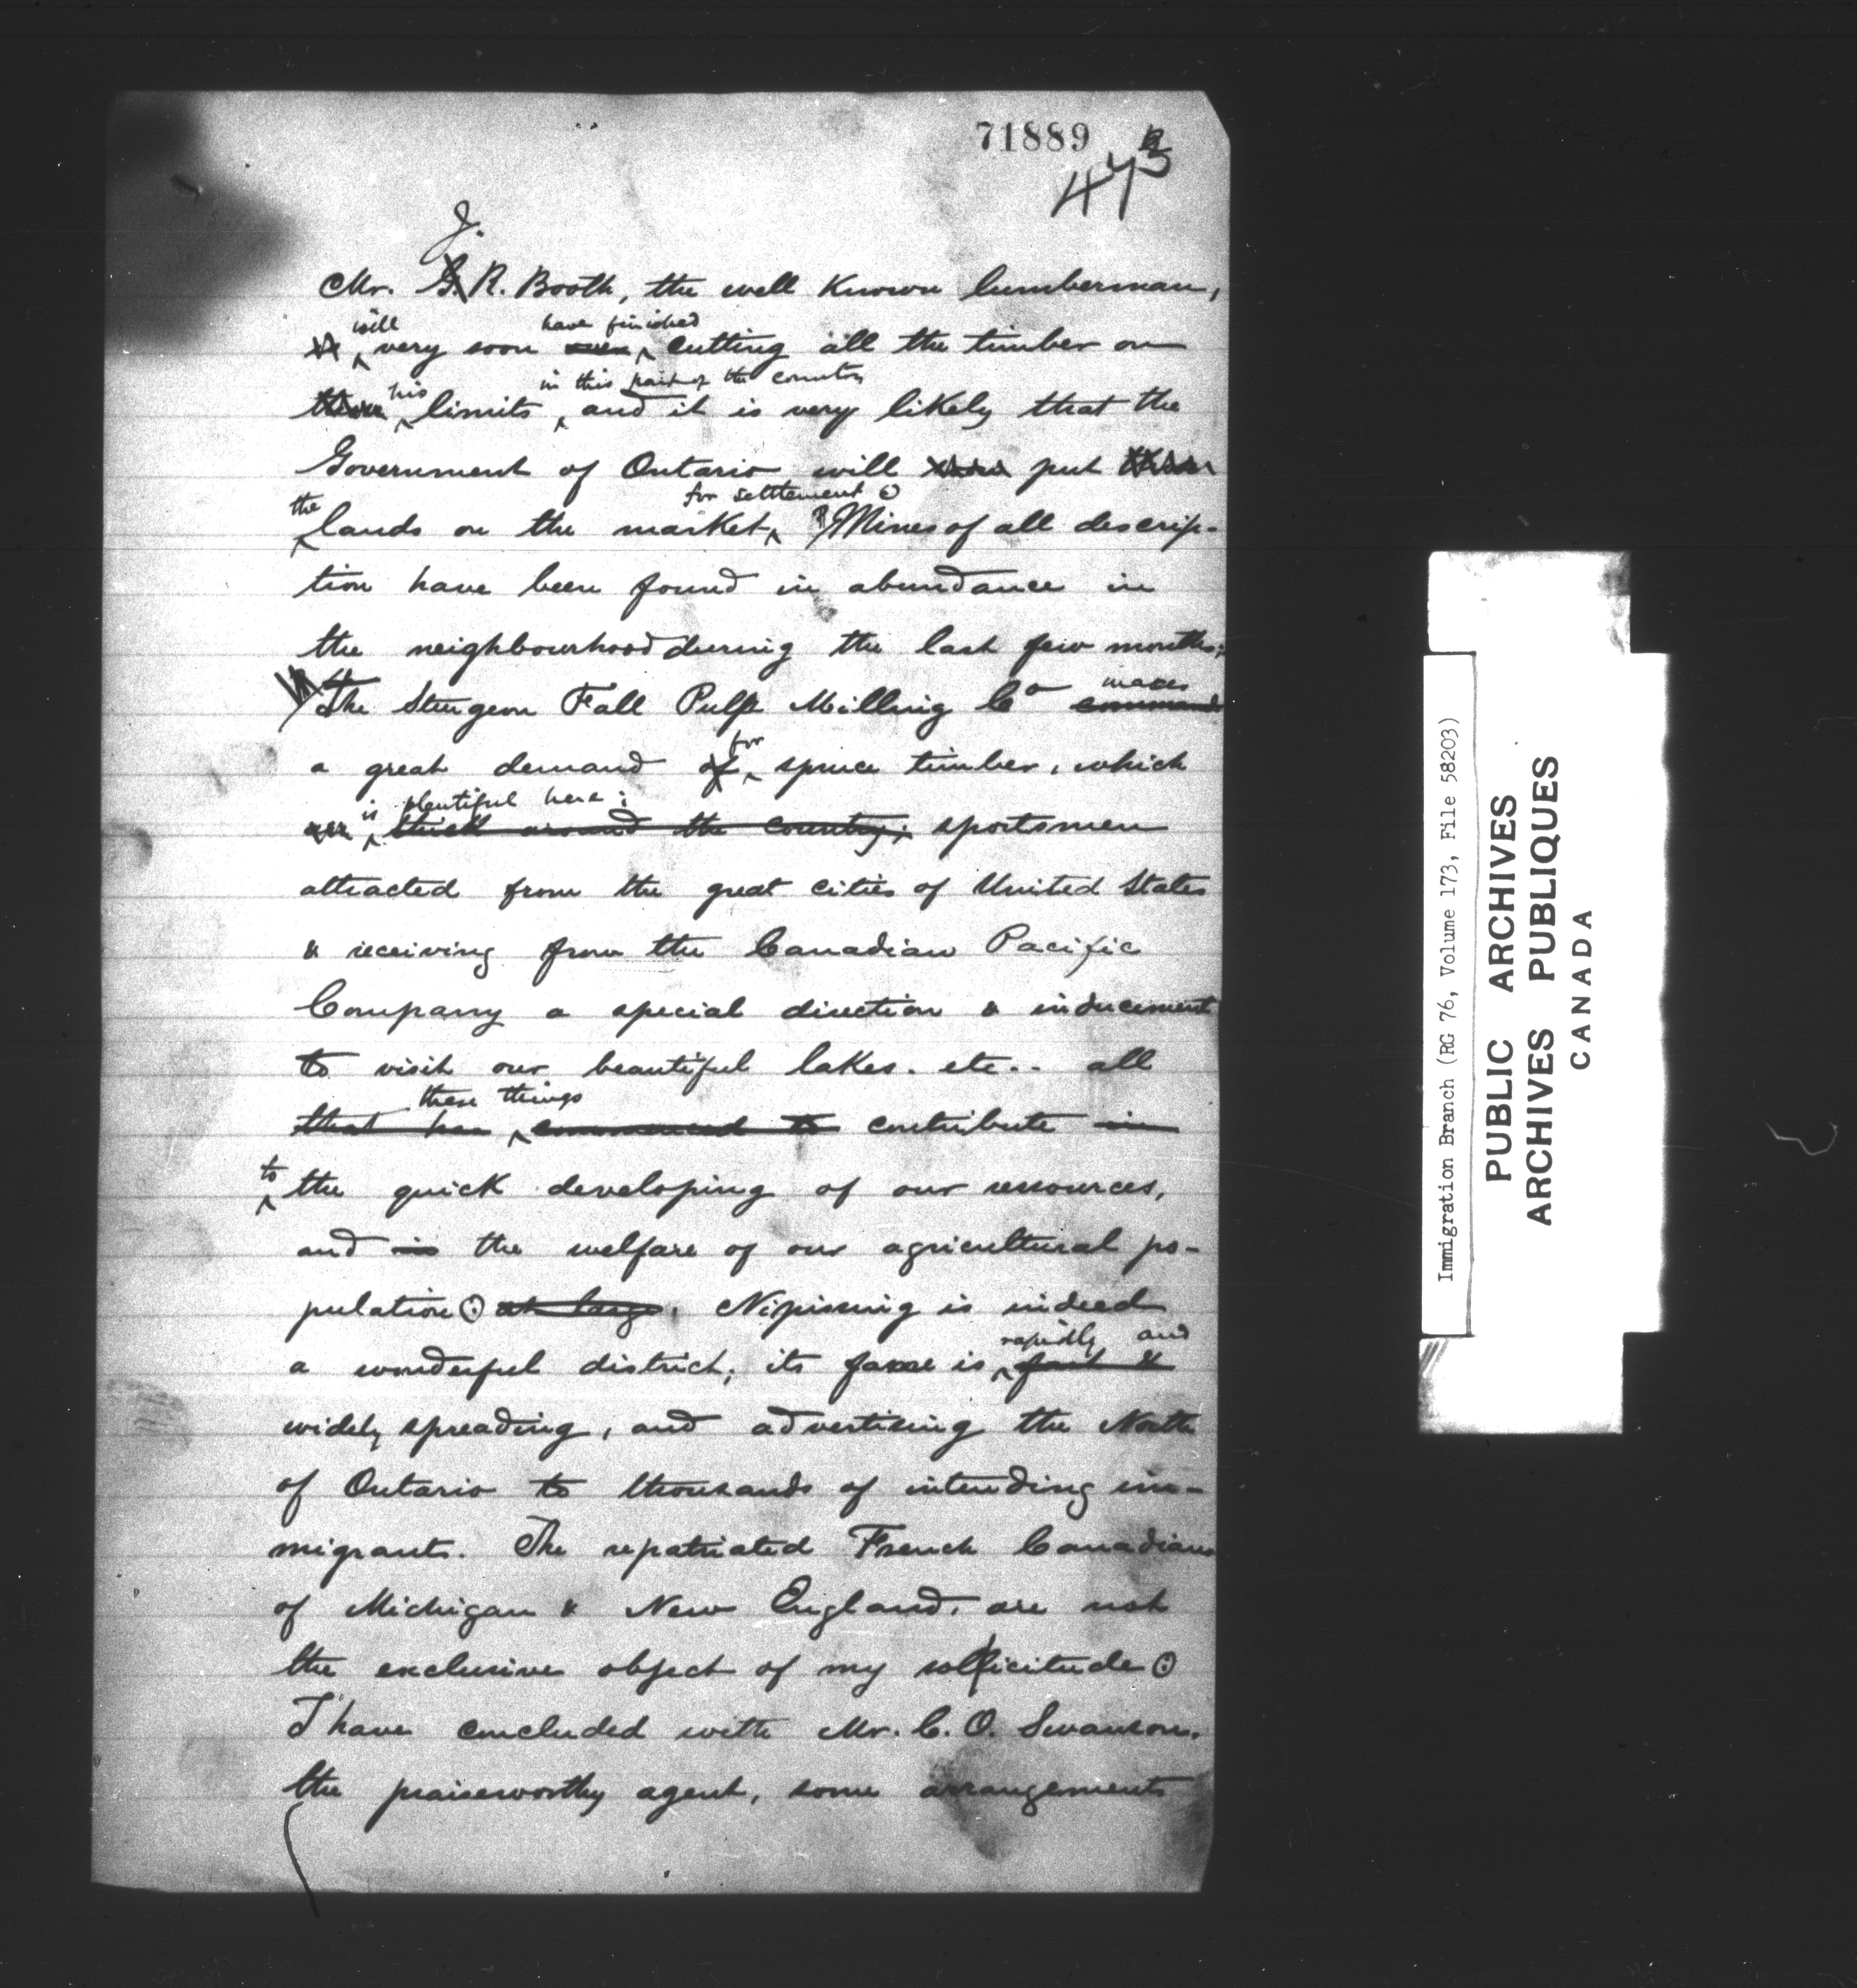 71889
473
J.
Mr. G. R. Booth, the well Known lumberman,
will have finished
very soon cutting all the timber on
his in this part of the country
limits, and it is very likely that the
Government of Ontario will put
the for settlement
lands on the market, Mines of all descrip-
tion have been found in abundance in
the neighbourhood during the last few months;
The Sturgeon Fall Pulp Milling Co makes
a great demand of for spruce timber, which
is plentiful here;
thick around the country; sportsmen
attracted from the great cities of United States
& receiving from the Canadian Pacific
Company a special direction & inducement
to visit our beautiful lakes. etc.. all
these things
that has commenced to contribute in
to the quick developing of our ressources,
and in the welfare of our agricultural po-
pulation. at large. Nipissing is indeed
rapidly and
a wonderful district; its fame is fast &
widely spreading, and advertising the North
of Ontario to thousands of intending im-
migrants. The repatriated French Canadians
of Michigan & New England, are not
the exclusive object of my sollicitude.
I have concluded with Mr. C. O. Swanson,
the praiseworthy agent, some arrangements
Immigration Branch (RG 76, Volume 173, File 58203)
PUBLIC ARCHIVES
ARCHIVES PUBLIQUES
CANADA